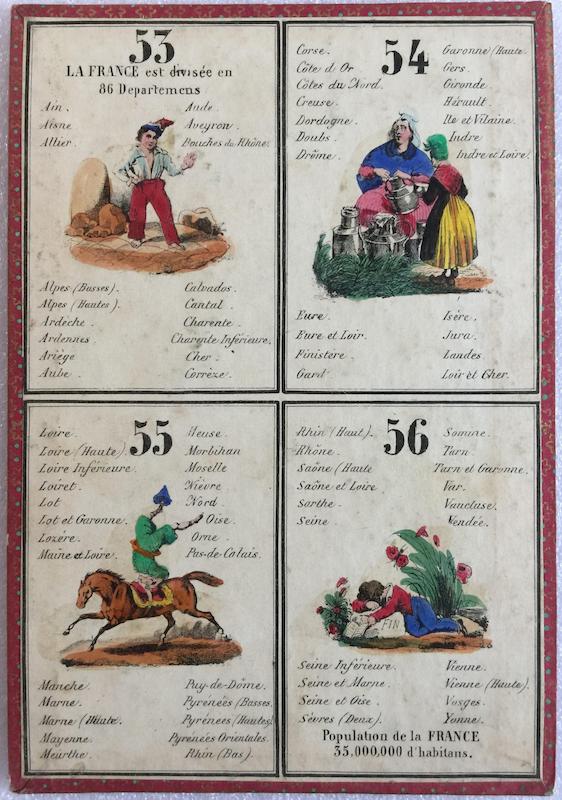 53
LA FRANCE est divisée en
86 Departemens
Ain.
Aisne
Allier
Aude.
Aveyron.
Bouches du Rhône.
Alpes (Basses).
Alpes (Hautes).
Ardèche.
Ardennes.
Ariège
Aube.
Calvados.
Cantal.
Charente.
Charente Inférieure.
Cher.
Corrèze.
54
Corse.
Côte d Or
Côtes du Nord.
Creuse.
Dordogne.
Doubs.
Drôme.
Garonne (Haute
Gers.
Gironde
Hérault.
Ile et Vilaine.
Indre
Indre et Loire.
Eure.
Eure et Loir.
Finistère.
Gard
Isère.
Jura.
Landes
Loir et Cher.
55
Loire.
Loire (Haute).
Loire Inférieure.
Loiret.
Lot
Lot et Garonne.
Lozère.
Maine et Loire.
Meuse.
Morbihan
Moselle
Nièvre
Nord.
Oise.
Orne.
Pas-de-Calais.
Manche.
Marne.
Marne (Haute.
Mayenne.
Meurthe.
Puy-de-Dôme.
Pyrénées (Basses.
Pyrénées (Hautes)
Pyrénées Orientales.
Rhin (Bas).
56
Rhin (Haut).
Rhône.
Saône (Haute
Saône et Loire
Sarthe.
Seine
Somme.
Tarn
Tarn et Garonne.
Var.
Vaucluse.
Vendée.
FIN
Seine Inférieure.
Seine et Marne.
Seine et Oise.
Sèvres (Deux).
Vienne.
Vienne (Haute).
Vosges.
Yonne.
Population de la FRANCE
35,000,000 d'habitans.